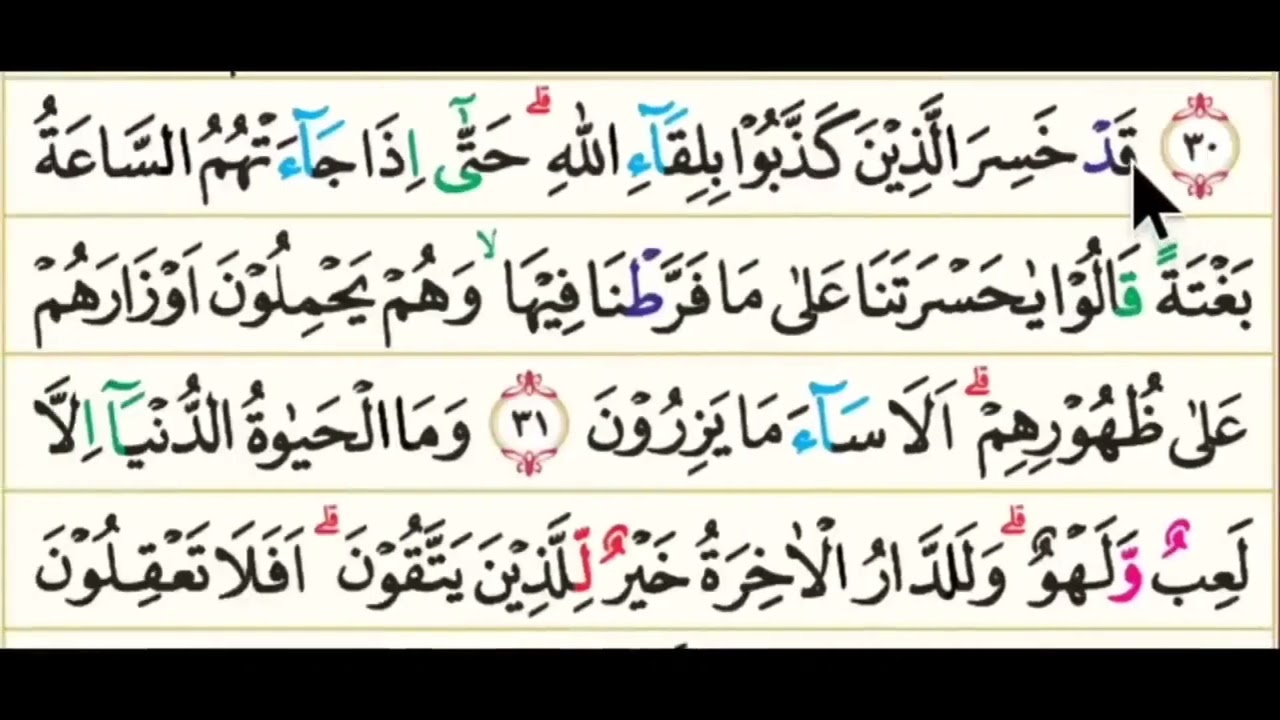 ٣٠ قَدْ خَسِرَ الَّذِيْنَ كَذَّبُوْا بِلِقَاۤءِ اللّٰهِ ۗ حَتّٰٓى اِذَا جَاۤءَتْهُمُ السَّاعَةُ
بَغْتَةً قَالُوْا يٰحَسْرَتَنَا عَلٰى مَا فَرَّطْنَا فِيْهَا ۙ وَهُمْ يَحْمِلُوْنَ اَوْزَارَهُمْ
عَلٰى ظُهُوْرِهِمْ ۗ اَلَا سَاۤءَ مَا يَزِرُوْنَ ٣١ وَمَا الْحَيٰوةُ الدُّنْيَآ اِلَّا
لَعِبٌ وَّلَهْوٌ ۗ وَلَلدَّارُ الْاٰخِرَةُ خَيْرٌ لِّلَّذِيْنَ يَتَّقُوْنَ ۗ اَفَلَا تَعْقِلُوْنَ